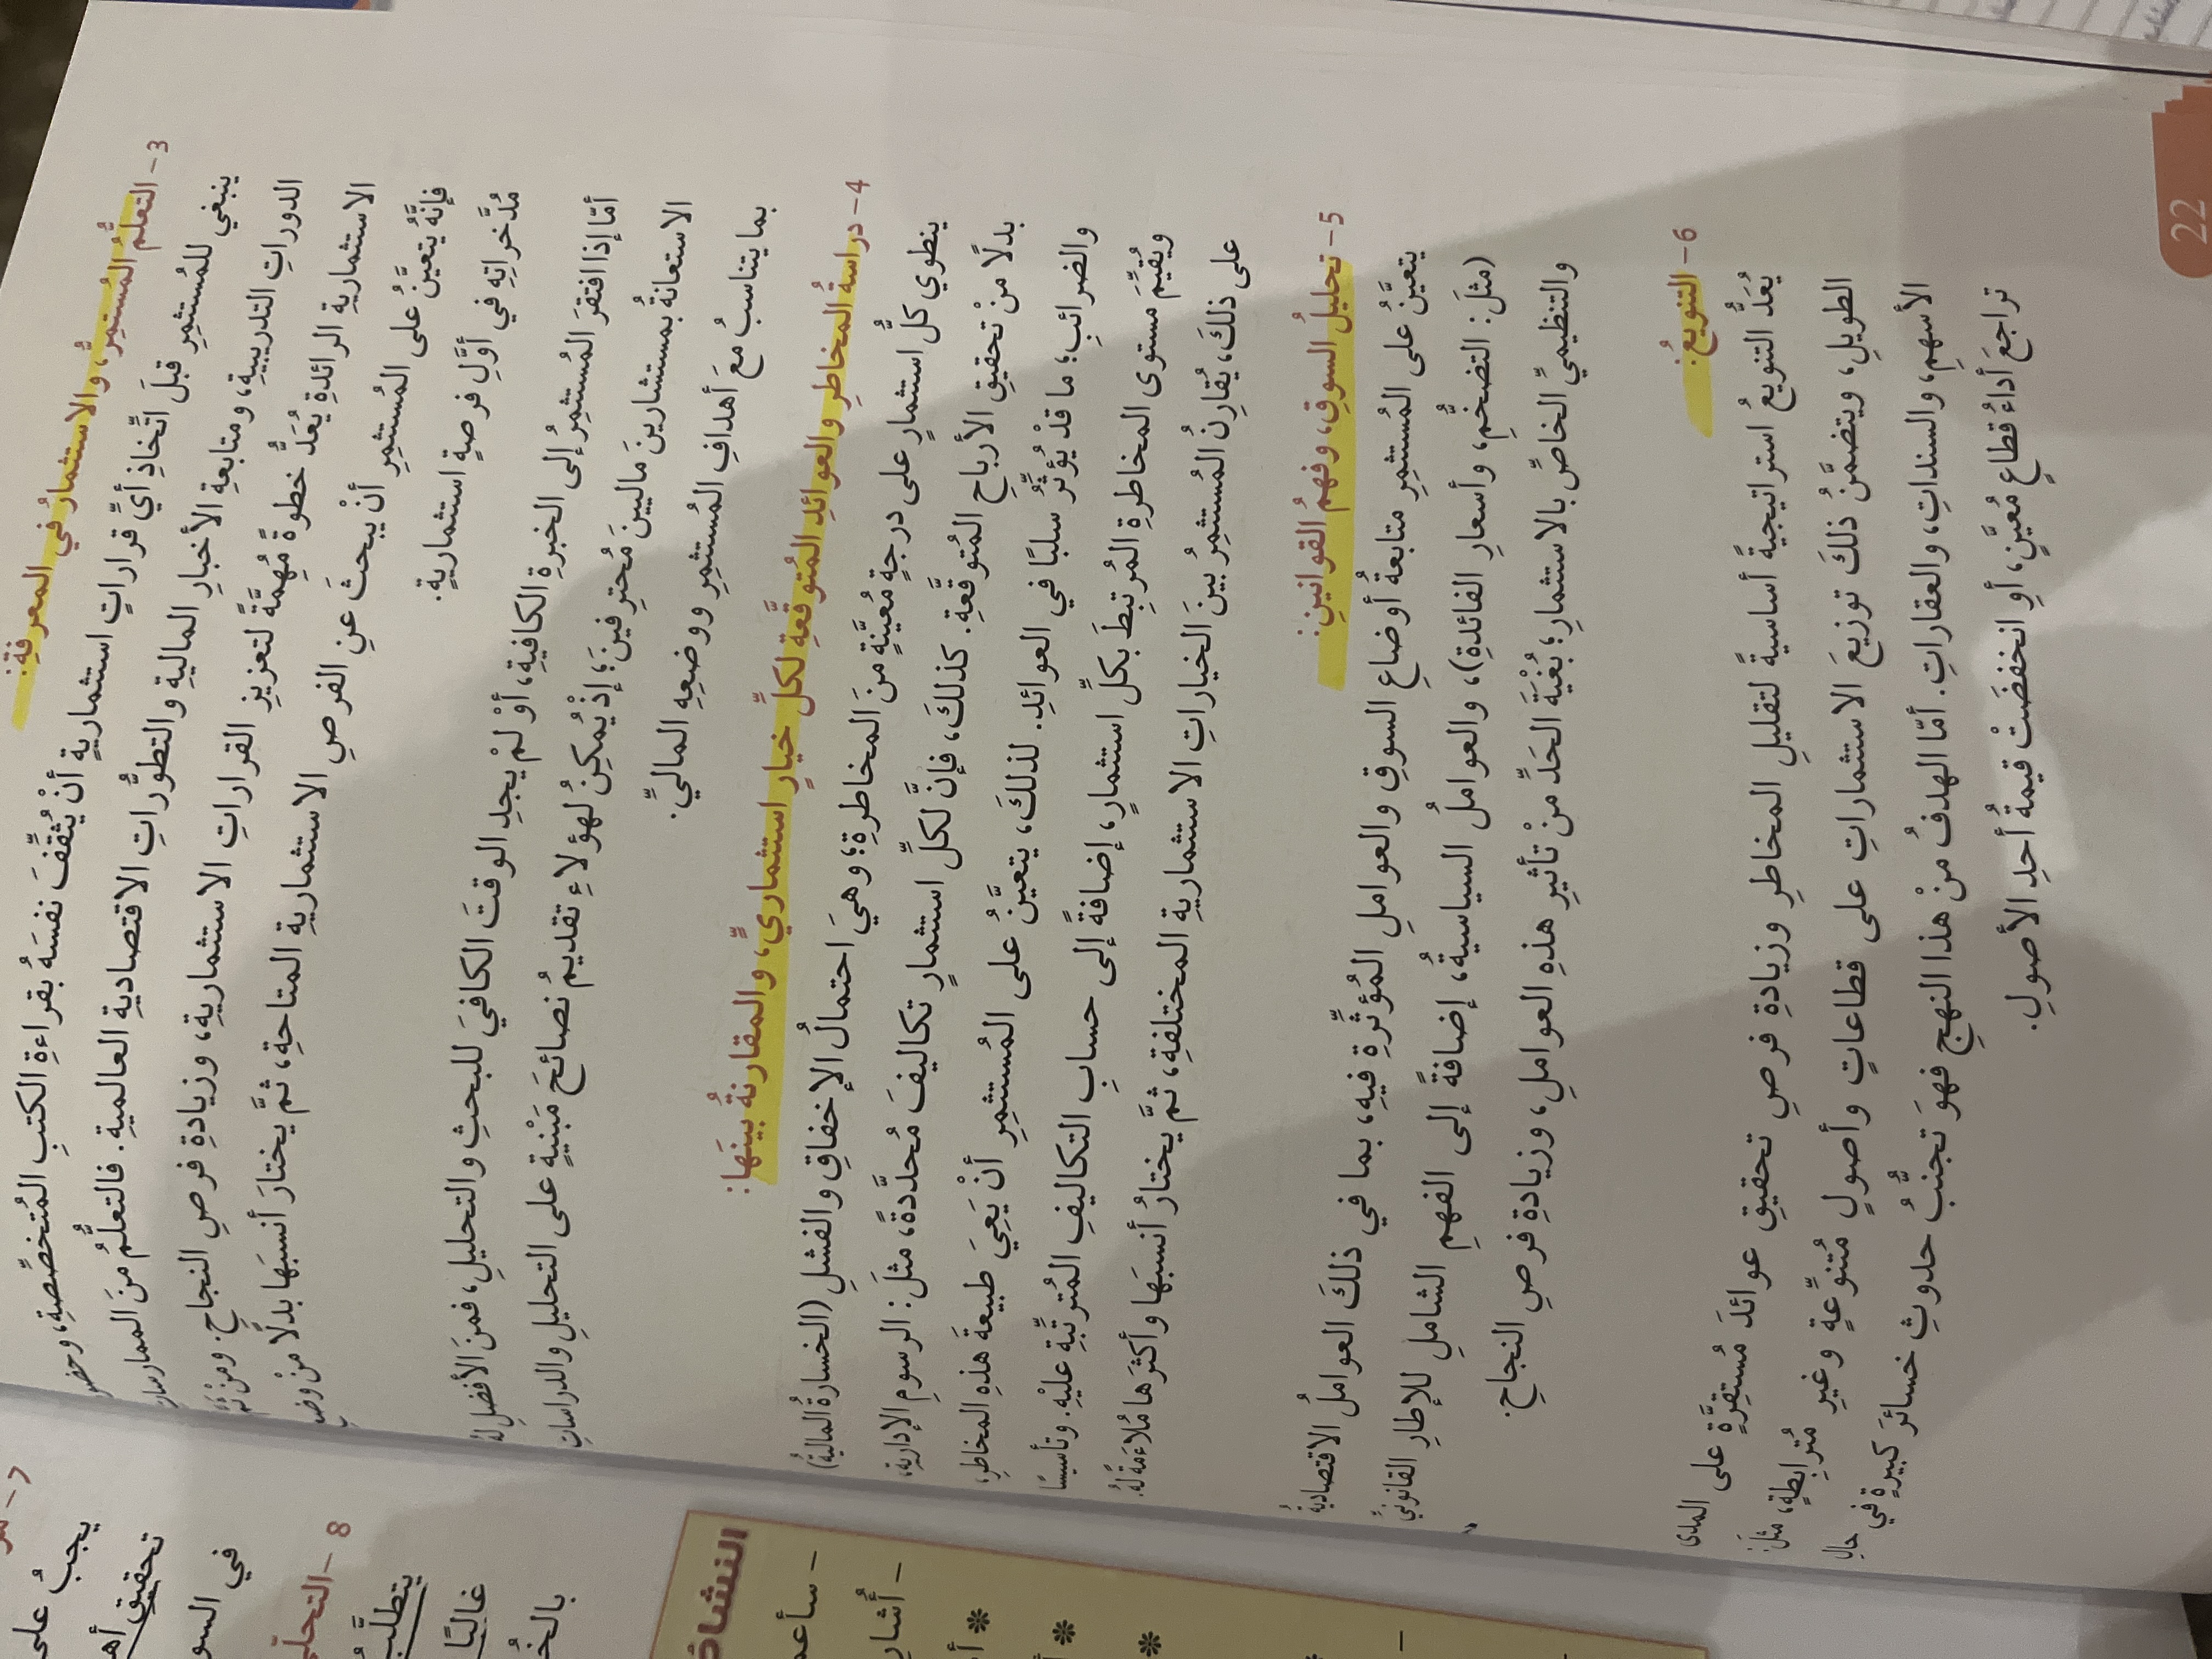 3- التعلُّمُ المُستمِرُّ، والاستثمارُ في المعرفةِ:
ينبغي للمُستثمِرِ قبلَ اتِّخاذِ أيِّ قراراتٍ استثماريةٍ أنْ يُثقِّفَ نفسَهُ بقراءةِ الكتبِ المُتخصِّصةِ، وحضورِ
الدوراتِ التدريبيةِ، ومتابعةِ الأخبارِ الماليةِ والتطوُّراتِ الاقتصاديةِ العالميةِ. فالتعلُّمُ منَ الممارساتِ
الاستثماريةِ الرائدةِ يُعَدُّ خطوةً مُهِمَّةً لتعزيزِ القراراتِ الاستثماريةِ، وزيادةِ فرصِ النجاحِ. ومنْ ثَمَّ
فإنَّهُ يتعيَّنُ على المُستثمِرِ أنْ يبحثَ عنِ الفرصِ الاستثماريةِ المتاحةِ، ثمَّ يختارَ أنسبَهَا بدلًا منْ وضعِ
مُدَّخراتِهِ في أوَّلِ فرصةٍ استثماريةٍ.
أمّا إذا افتقرَ المُستثمِرُ إلى الخبرةِ الكافيةِ، أوْ لمْ يجدِ الوقتَ الكافيَ للبحثِ والتحليلِ، فمنَ الأفضلِ لهُ
الاستعانةُ بمستشارينَ ماليينَ مُحترِفينَ؛ إذْ يُمكِنُ لهؤلاءِ تقديمُ نصائحَ مَبْنيةٍ على التحليلِ والدراساتِ
بما يتناسبُ معَ أهدافِ المُستثمِرِ ووضعِهِ الماليِّ.
4- دراسةُ المخاطرِ والعوائدِ المُتوقَّعةِ لكلِّ خيارٍ استثماريٍّ، والمقارنةُ بينَهَا:
ينطوي كلُّ استثمارٍ على درجةٍ مُعيَّنةٍ منَ المخاطرةِ؛ وهيَ احتمالُ الإخفاقِ والفشلِ (الخسارةُ الماليةُ)
بدلًا منْ تحقيقِ الأرباحِ المُتوقَّعةِ. كذلكَ، فإنَّ لكلِّ استثمارٍ تكاليفَ مُحدَّدةً، مثلَ: الرسومِ الإداريةِ،
والضرائبِ؛ ما قدْ يُؤثِّرُ سلبًا في العوائدِ. لذلكَ، يتعيَّنُ على المُستثمِرِ أنْ يَعِيَ طبيعةَ هذهِ المخاطرِ،
ويُقيِّمَ مستوى المخاطرةِ المُرتبِطَ بكلِّ استثمارٍ، إضافةً إلى حسابِ التكاليفِ المُترتِّبةِ عليْهِ. وتأسيسًا
على ذلكَ، يُقارِنُ المُستثمِرُ بينَ الخياراتِ الاستثماريةِ المختلفةِ، ثمَّ يختارُ أنسبَهَا وأكثرَها مُلاءَمةً لهُ.
5- تحليلُ السوقِ، وفهمُ القوانينِ:
يتعيَّنُ على المُستثمِرِ متابعةُ أوضاعِ السوقِ والعواملِ المُؤثِّرةِ فيهِ، بما في ذلكَ العواملُ الاقتصاديةُ
(مثلَ: التضخُّمِ، وأسعارِ الفائدةِ)، والعواملُ السياسيةُ، إضافةً إلى الفهمِ الشاملِ للإطارِ القانونيِّ
والتنظيميِّ الخاصِّ بالاستثمارِ؛ بُغْيَةَ الحَدِّ منْ تأثيرِ هذهِ العواملِ، وزيادةِ فرصِ النجاحِ.
6- التنويعُ:
يُعَدُّ التنويعُ استراتيجيةً أساسيةً لتقليلِ المخاطرِ وزيادةِ فرصِ تحقيقِ عوائدَ مُستقِرَّةٍ على المدى
الطويلِ، ويتضمَّنُ ذلكَ توزيعَ الاستثماراتِ على قطاعاتٍ وأصولٍ مُتنوِّعةٍ وغيرِ مُترابِطةٍ، مثلَ:
الأسهمِ، والسنداتِ، والعقاراتِ. أمّا الهدفُ منْ هذا النهجِ فهوَ تجنُّبُ حدوثِ خسائرَ كبيرةٍ في حالِ
تراجعَ أداءُ قطاعٍ مُعيَّنٍ، أوِ انخفضَتْ قيمةُ أحدِ الأصولِ.
22
يجبُ على
تحقيقِ
في
8- التحلّي
يتطلَّبُ
غالبًا
النشاط